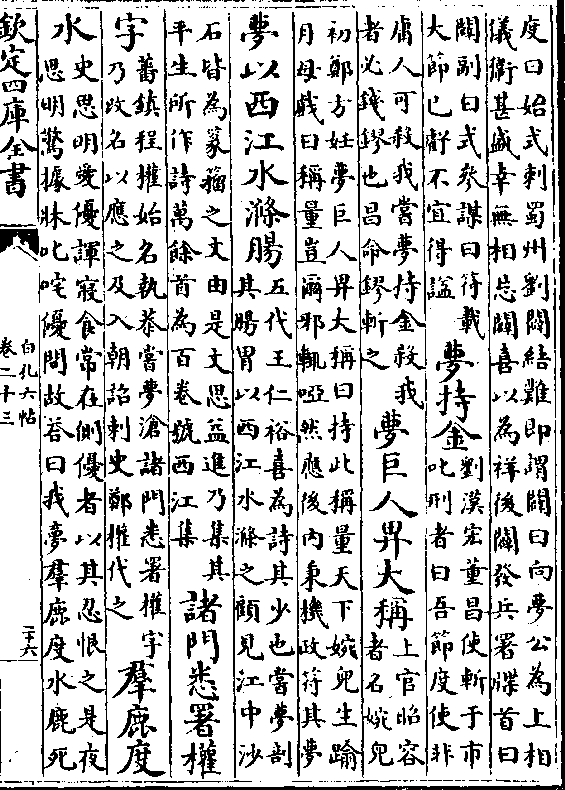 度曰始式刺蜀州劉闢結難即謂闢曰向夢公為上相
儀衛甚盛幸無相忘闢喜以為祥後闢發兵署牒首曰
闢副曰式參謀曰符載
大節已虧不宜得謚
夢持金
劉漢宏董昌使斬于市
叱刑者曰吾節度使非
庸人可殺我嘗夢持金殺我
者必錢鏐也昌命鏐斬之
夢巨人畀大稱
上官昭容
者名婉兒
初鄭方妊夢巨人畀大稱曰持此稱量天下婉兒生踰
月母戲曰稱量豈爾邪輒啞然應後內秉機政符其夢
夢以西江水滌腸
五代王仁裕喜為詩其少也嘗夢剖
其腸胃以西江水滌之顧見江中沙
石皆為篆籀之文由是文思益進乃集其
平生所作詩萬餘首為百卷號西江集
諸門悉署權
字
舊鎮程權始名執恭嘗夢滄諸門悉署權字
乃改名以應之及入朝詔刺史鄭權代之
羣鹿度
水
史思明愛優諢寢食常在側優者以其忍恨之是夜
思明驚據牀叱咤優問故荅曰我夢羣鹿度水鹿死
欽定四庫全書
白孔六帖
卷二十三
二十六